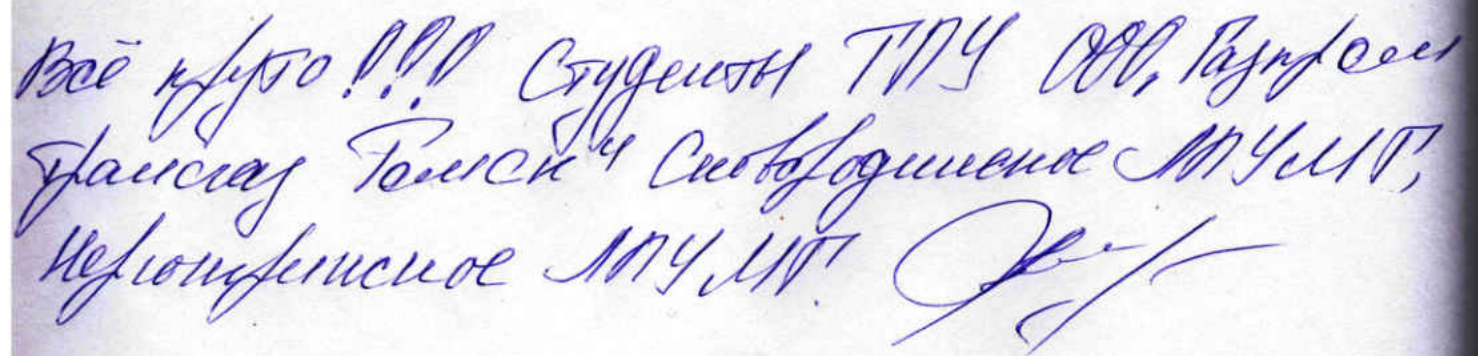 Всё круто!!! Студенты ТПУ ООО „Газпром
трансгаз Томск" Сковородинское ЛПУМГ,
Нерюнгринское ЛПУМГ.